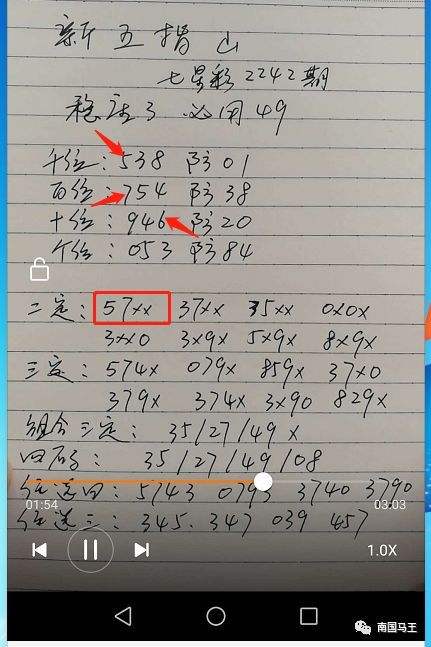 新五指山
七星彩2242期
稳庄3 必用49
千位：538 防01
百位：754 防38
十位：946 防20
个位：053 防84
二定：57xx 37xx 35xx 0x0x
3xx0 3x9x 5x9x 8x9x
三定：574x 079x 859x 37x0
379x 374x 3x90 829x
组合三定：35/27/49x
四码：35/27/49/08
任选四：5743 0793 3740 3790
01:54 03:03
任选三：345. 347 039 457
1.0X
南国马王